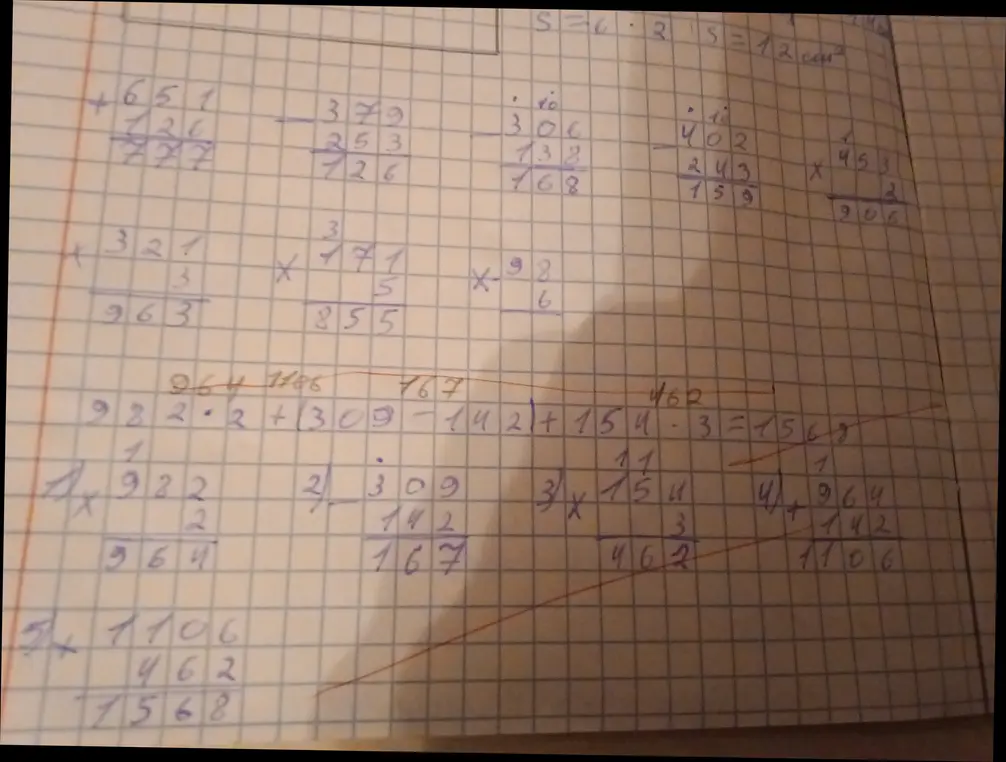 S = 6 · 2 S = 12 cm²
+ 651 − 379 − 306 − 402 × 453
126 253 138 243 2
777 126 168 159 906
3
× 321 × 171 × 98
3 5 6
963 855
964 1106 167 462
982 · 2 + (309 − 142) + 154 · 3 = 1568
1) × 982 2) − 309 3) × 154 4) + 964
2 142 3 142
964 167 462 1106
5) + 1106
462
1568